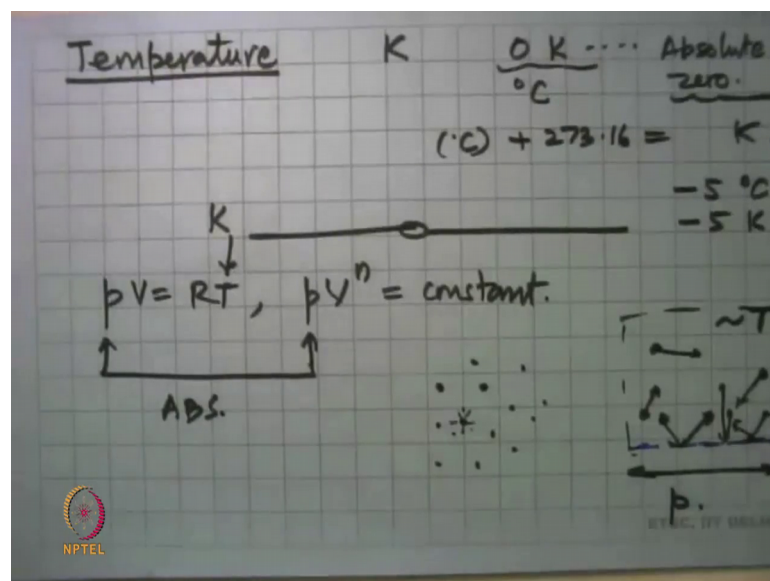 Temperature K 0 K .... Absolute zero.
°C
(°C) + 273.16 = K
-5 °C
-5 K
K
pV = RT, pVⁿ = constant.
~T
ABS.
p.
NPTEL